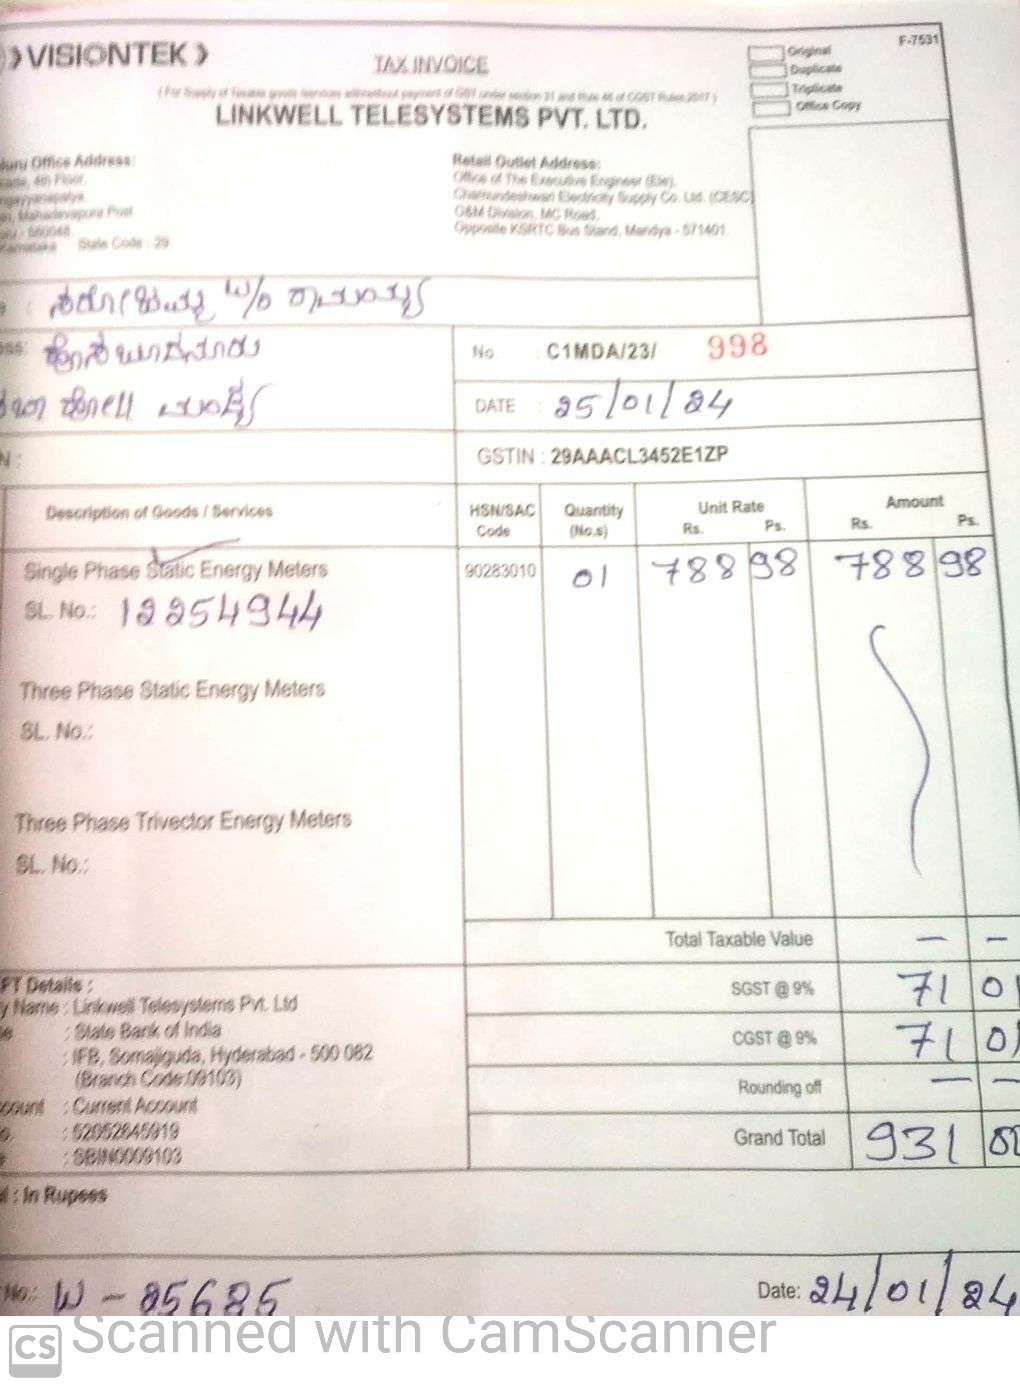 VISIONTEK
F-7531
TAX INVOICE
Original
Duplicate
Triplicate
Office Copy
(For Supply of Taxable goods /services with/without payment of GST under section 31 and Rule 46 of CGST Rules 2017)
LINKWELL TELESYSTEMS PVT. LTD.
Office Address:
4th Floor,
Mahadevapura Post
State Code : 29
Retail Outlet Address:
Office of The Executive Engineer (Ele),
Chamundeshwari Electricity Supply Co. Ltd. (CESC)
O&M Division, MC Road,
Opposite KSRTC Bus Stand, Mandya - 571401.
W/o
No : C1MDA/23/ 998
DATE : 25/01/24
GSTIN : 29AAACL3452E1ZP
Description of Goods / Services
HSN/SAC Code
Quantity (No.s)
Unit Rate Rs. Ps.
Amount Rs. Ps.
Single Phase Static Energy Meters 90283010 01 788 98 788 98
SL. No.: 12254944
Three Phase Static Energy Meters
SL. No.:
Three Phase Trivector Energy Meters
SL. No.:
Total Taxable Value — —
SGST @ 9% 71 01
CGST @ 9% 71 01
Rounding off — —
Grand Total 931 00
Details :
Name : Linkwell Telesystems Pvt. Ltd
: State Bank of India
: IFB, Somajiguda, Hyderabad - 500 082
(Branch Code:09103)
: Current Account
: 52052845919
: SBIN0009103
: In Rupees
No.: W - 25625
Date: 24/01/24
CS Scanned with CamScanner